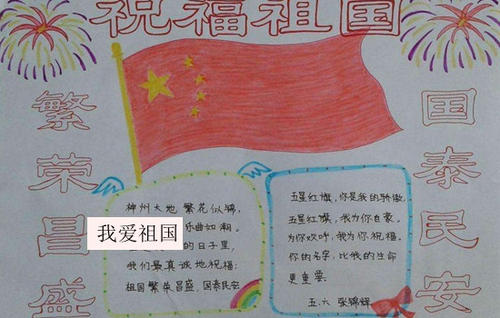 祝福祖国
繁荣昌盛
国泰民安
神州大地 繁花似锦,
乐曲如潮。
的日子里,
我们最真诚地祝福:
祖国繁荣昌盛,国泰民安
我爱祖国
五星红旗,你是我的骄傲,
五星红旗,我为你自豪。
为你欢呼,我为你祝福。
你的名字,比我的生命
更重要
五.六 张锦辉